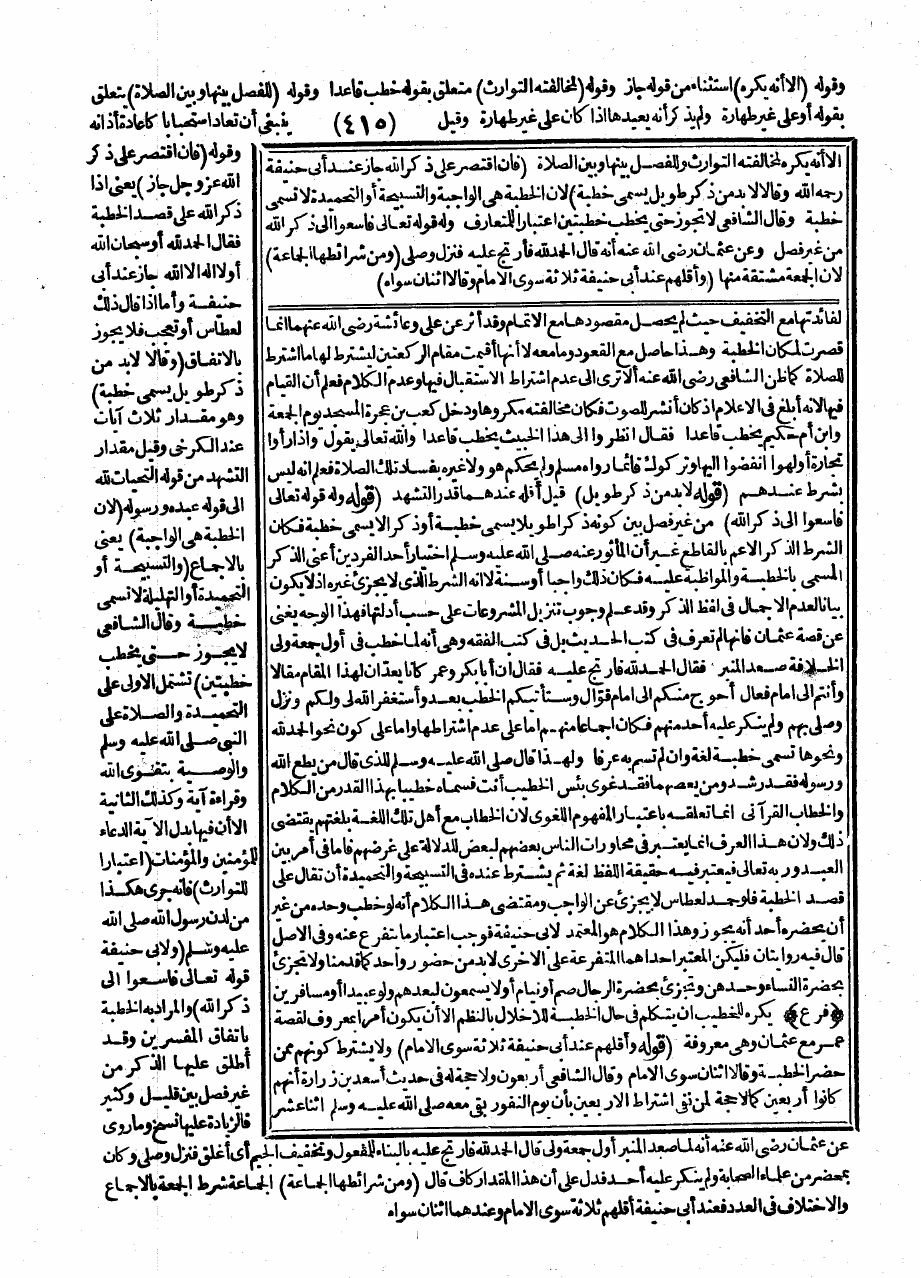 وقوله (الا أنه يكره) استثناء من قوله جاز وقوله (لمخالفته التوارث) متعلق بقوله خطب قاعدا وقوله (للفصل بينها وبين الصلاة) يتعلق
بقوله أو على غير طهارة ولم يذكر أنه يعيدها اذا كان على غير طهارة وقيل (٤١٥) ينبغى أن تعاد استحبابا كاعادة أذانه
الا أنه يكره لمخالفته التوارث وللفصل بينها وبين الصلاة (فان اقتصر على ذكر الله جاز عند أبى حنيفة
رحمه الله وقالا لابد من ذكر طويل يسمى خطبة) لان الخطبة هى الواجبة والتسبيحة أو التحميدة لا تسمى
خطبة وقال الشافعى لا تجوز حتى يخطب خطبتين اعتبارا للمتعارف وله قوله تعالى فاسعوا الى ذكر الله
من غير فصل وعن عثمان رضى الله عنه أنه قال الحمد لله فأرتج عليه فنزل وصلى (ومن شرائطها الجماعة)
لان الجمعة مشتقة منها (وأقلهم عند أبى حنيفة ثلاثة سوى الامام وقالا اثنان سواه)
لفائدتها مع التخفيف حيث لم يحصل مقصودها مع الاتمام وقد أثر عن على وعائشة رضى الله عنهما انما
قصرت لمكان الخطبة وهذا حاصل مع القعود وما معه لا أنها أقيمت مقام الركعتين ليشترط لها ما اشترط
للصلاة كما ظن الشافعى رضى الله عنه ألا ترى الى عدم اشتراط الاستقبال فيها وعدم الكلام فعلم أن القيام
فيها لانه أبلغ فى الاعلام اذ كان أنشر للصوت فكان مخالفته مكروها ودخل كعب بن عجرة المسجد يوم الجمعة
وابن أم حكيم يخطب قاعدا فقال انظروا الى هذا الخبيث يخطب قاعدا والله تعالى يقول واذا رأوا
تجارة أو لهوا انفضوا اليها وتركوك قائما رواه مسلم ولم يحكم هو ولا غيره بفساد تلك الصلاة فعلم انه ليس
بشرط عندهم (قوله لابد من ذكر طويل) قيل أقله عندهما قدر التشهد (قوله وله قوله تعالى
فاسعوا الى ذكر الله) من غير فصل بين كونه ذكرا طويلا يسمى خطبة أو ذكرا لا يسمى خطبة فكان
الشرط الذكر الاعم بالقاطع غير أن المأثور عنه صلى الله عليه وسلم اختيار أحد الفردين أعنى الذكر
المسمى بالخطبة والمواظبة عليه فكان ذلك واجبا أو سنة لا انه الشرط الذى لا يجزئ غيره اذ لا يكون
بيانا لعدم الاجمال فى لفظ الذكر وقد علم وجوب تنزيل المشروعات على حسب أدلتها فهذا الوجه يغنى
عن قصة عثمان فانها لم تعرف فى كتب الحديث بل فى كتب الفقه وهى أنه لما خطب فى أول جمعة ولى
الخلافة صعد المنبر فقال الحمد لله فأرتج عليه فقال ان أبا بكر وعمر كانا يعدان لهذا المقام مقالا
وأنتم الى امام فعال أحوج منكم الى امام قوال وستأتيكم الخطب بعد وأستغفر الله لى ولكم ونزل
وصلى بهم ولم ينكر عليه أحد منهم فكان اجماعا منهم اما على عدم اشتراطها واما على كون نحو الحمد لله
ونحوها تسمى خطبة لغة وان لم تسم به عرفا ولهذا قال صلى الله عليه وسلم للذى قال من يطع الله
ورسوله فقد رشد ومن يعصهما فقد غوى بئس الخطيب أنت فسماه خطيبا بهذا القدر من الكلام
والخطاب القرآنى انما تعلقه باعتبار المفهوم اللغوى لان الخطاب مع أهل تلك اللغة بلغتهم يقتضى
ذلك ولان هذا العرف انما يعتبر فى محاورات الناس بعضهم لبعض للدلالة على غرضهم فاما فى أمر بين
العبد وربه تعالى فيعتبر فيه حقيقة اللفظ لغة ثم يشترط عنده فى التسبيحة والتحميدة أن تقال على
قصد الخطبة فلو حمد لعطاس لا يجزئ عن الواجب ومقتضى هذا الكلام أنه لو خطب وحده من غير
أن يحضره أحد أنه يجوز وهذا الكلام هو المعتمد لابى حنيفة فوجب اعتبار ما يتفرع عنه وفى الاصل
قال فيه روايتان فليكن المعتبر احداهما المتفرعة على الاخرى لابد من حضور واحد كما قدمنا ولا يجزئ
بحضرة النساء وحدهن وتجزئ بحضرة الرجال صم أو نيام أو لا يسمعون لبعدهم ولو عبيدا أو مسافرين
﴿فرع﴾ يكره للخطيب ان يتكلم فى حال الخطبة للاخلال بالنظم الا أن يكون أمرا بمعروف لقصة
عمر مع عثمان وهى معروفة (قوله وأقلهم عند أبى حنيفة ثلاثة سوى الامام) ولا يشترط كونهم ممن
حضر الخطبة وقالا اثنان سوى الامام وقال الشافعى أربعون ولا حجة له فى حديث أسعد بن زرارة أنهم
كانوا أربعين كما لا حجة لمن نفى اشتراط الاربعين بأن يوم النفور بقى معه صلى الله عليه وسلم اثنا عشر
وقوله (فان اقتصر على ذكر
الله عز وجل جاز) يعنى اذا
ذكر الله على قصد الخطبة
فقال الحمد لله أو سبحان الله
أو لا اله الا الله جاز عند أبى
حنيفة وأما اذا قال ذلك
لعطاس أو تعجب فلا يجوز
بالاتفاق (وقالا لابد من
ذكر طويل يسمى خطبة)
وهو مقدار ثلاث آيات
عند الكرخى وقيل مقدار
التشهد من قوله التحيات لله
الى قوله عبده ورسوله (لان
الخطبة هى الواجبة) يعنى
بالاجماع (والتسبيحة أو
التحميدة أو التهليلة لا تسمى
خطبة وقال الشافعى
لا يجوز حتى يخطب
خطبتين) تشتمل الاولى على
التحميدة والصلاة على
النبى صلى الله عليه وسلم
والوصية بتقوى الله
وقراءة آية وكذلك الثانية
الا أن فيها بدل الآية الدعاء
للمؤمنين والمؤمنات (اعتبارا
للتوارث) فانه جرى هكذا
من لدن رسول الله صلى الله
عليه وسلم (ولابى حنيفة
قوله تعالى فاسعوا الى
ذكر الله) والمراد به الخطبة
باتفاق المفسرين وقد
أطلق عليها الذكر من
غير فصل بين قليل وكثير
فالزيادة عليها نسخ وما روى
عن عثمان رضى الله عنه أنه لما صعد المنبر أول جمعة ولى قال الحمد لله فأرتج عليه بالبناء للمفعول وتخفيف الجيم أى أغلق فنزل وصلى وكان
بمحضر من علماء الصحابة ولم ينكر عليه أحد فدل على أن هذا المقدار كاف قال (ومن شرائطها الجماعة) الجماعة شرط الجمعة بالاجماع
والاختلاف فى العدد فعند أبى حنيفة أقلهم ثلاثة سوى الامام وعندهما اثنان سواه